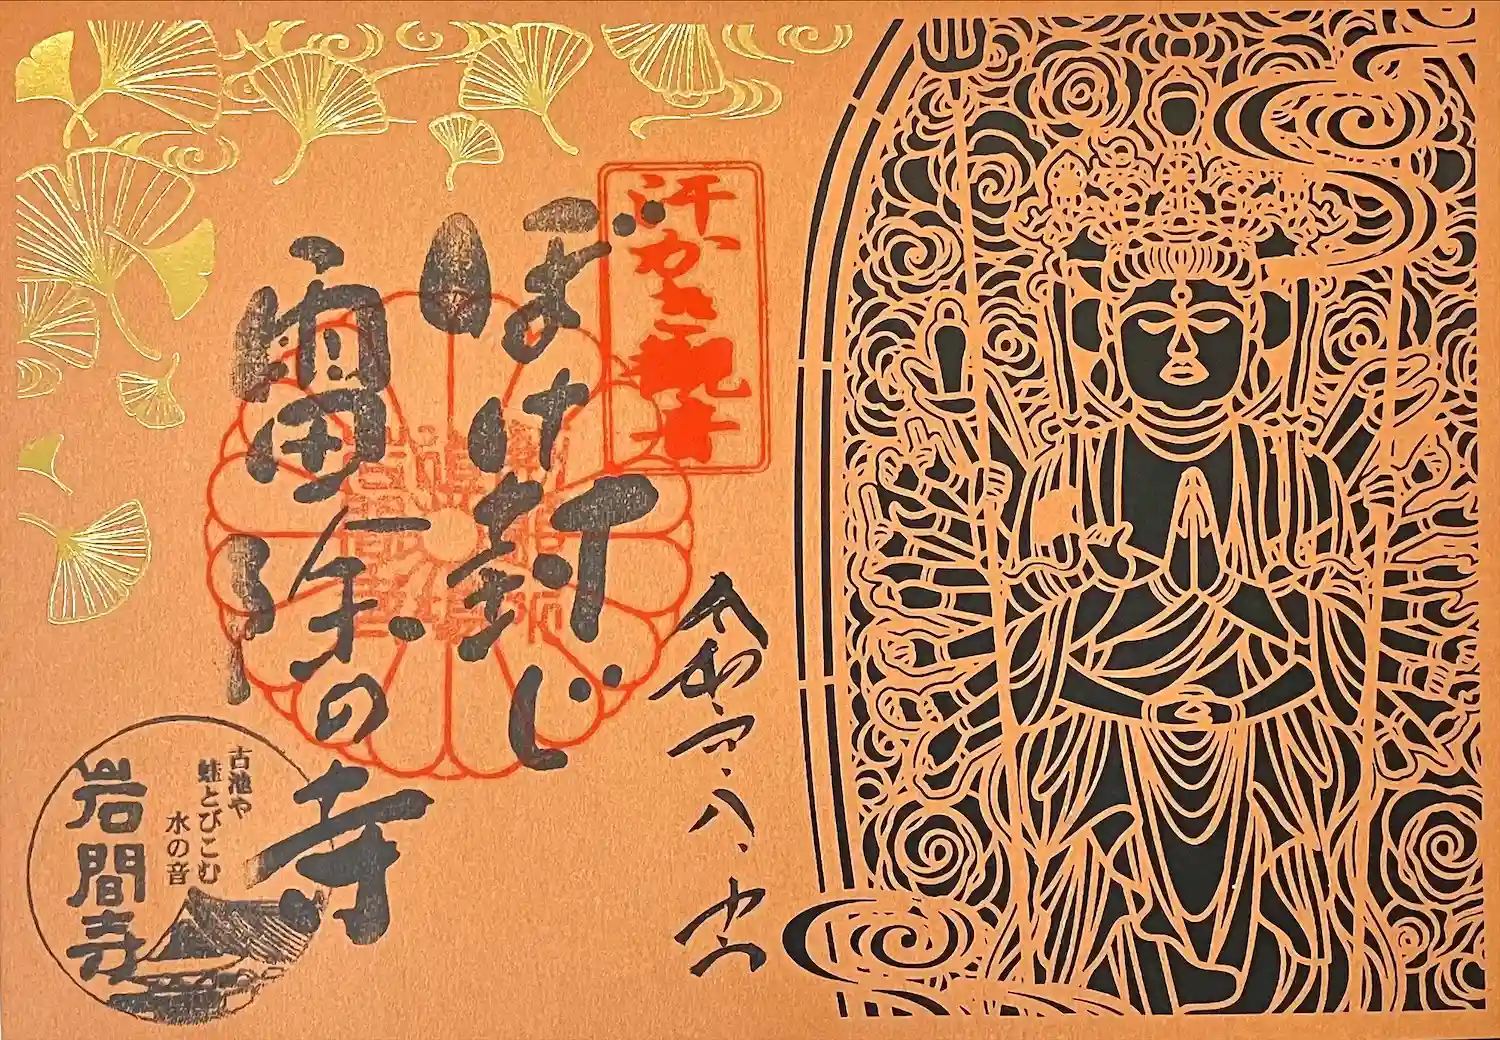 汗かき観音
ぼけ封じ
雷除の寺
令和
八、
古池や
蛙とびこむ
水の音
岩間寺